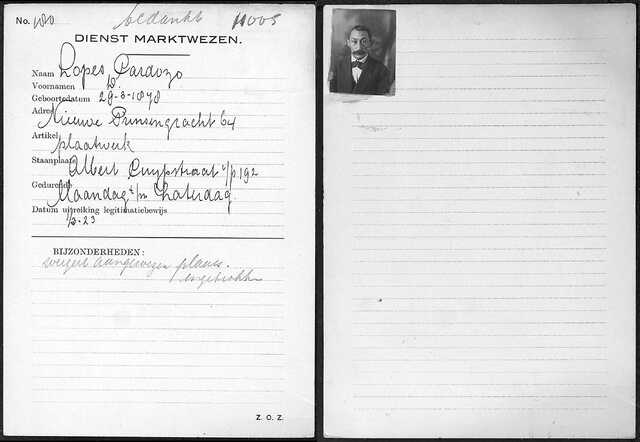 No. 180 bedankt 11005
DIENST MARKTWEZEN.
Naam Lopes Cardozo
Voornamen D.
Geboortedatum 29-3-1878
Adres Nieuwe Prinsengracht 64
Artikel plaatwerk
Staanplaats Albert Cuypstraat t/o 192
Gedurende Maandag t/m Zaterdag
Datum uitreiking legitimatiebewijs
12-23
BIJZONDERHEDEN:
weigert aangewezen plaats.
ingetrokken
Z. O. Z.